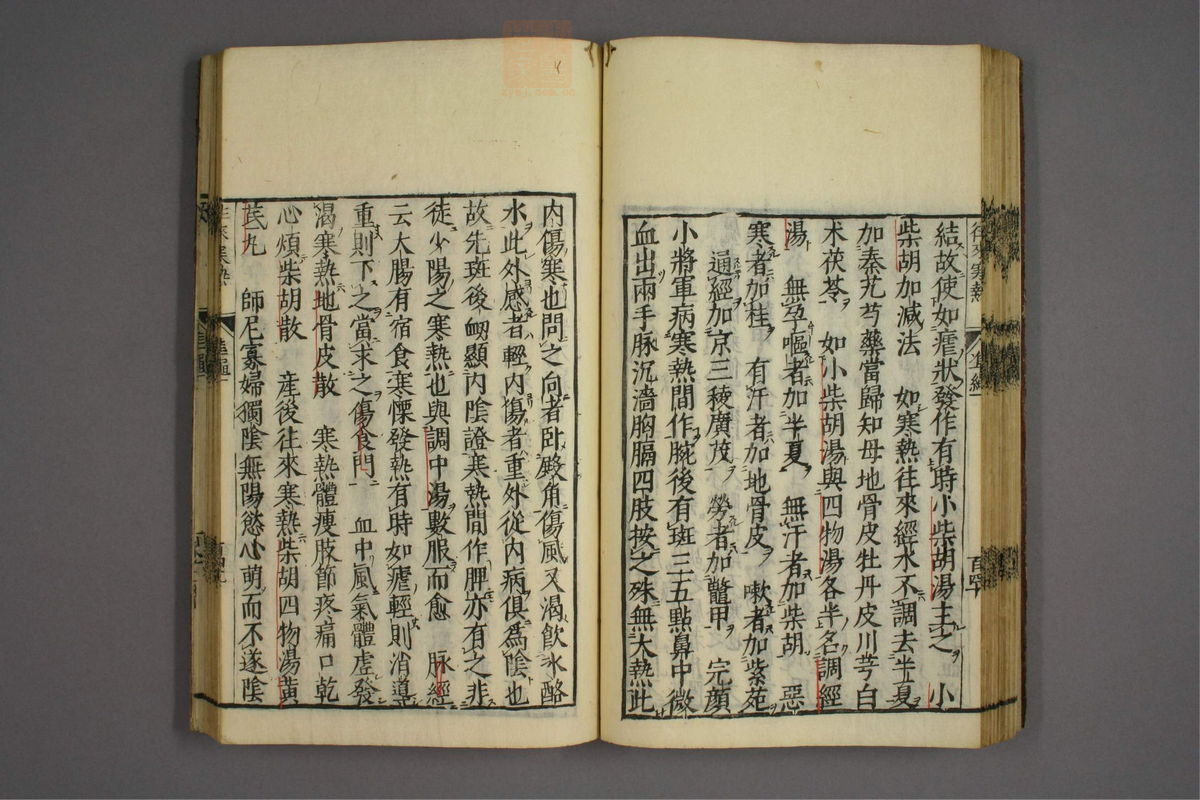 結故使如瘧狀發作有時小柴胡湯主之 小
柴胡加減法 如寒熱往來經水不調去半夏
加秦艽芍藥當歸知母地骨皮牡丹皮川芎白
朮茯苓 如小柴胡湯與四物湯各半名調經
湯 無孕嘔者加半夏 無汗者加柴胡 惡
寒者加桂 有汗者加地骨皮 嗽者加紫菀
通經加京三稜廣茂 勞者加鼈甲 完顔
小將軍病寒熱間作腕後有斑三五點鼻中微
血出兩手脉沉濇胸膈四肢按之殊無大熱此
内傷寒也問之向者卧殿角傷風又渴飲氷酪
水此外感者輕内傷者重外從内病俱爲陰也
故先斑後衂顯内陰證寒熱間作脾亦有之非
徒少陽之寒熱也與調中湯數服而愈 脉經
云大腸有宿食寒慄發熱有時如瘧輕則消導
重則下之當求之傷食門 血中風氣體虚發
渴寒熱地骨皮散 寒熱體痩肢節疼痛口乾
心煩柴胡散 産後往來寒熱柴胡四物湯黄
芪丸 師尼寡婦獨陰無陽慾心萌而不遂陰